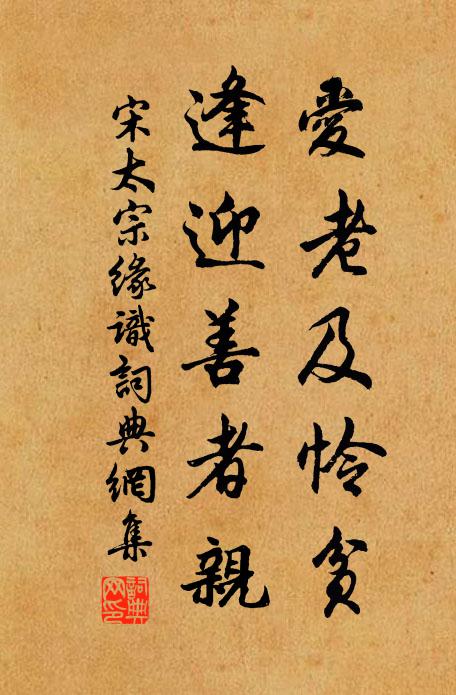 愛老及怜貧
逢迎善者親
宋太宗緣識詞典網集
詞典网印